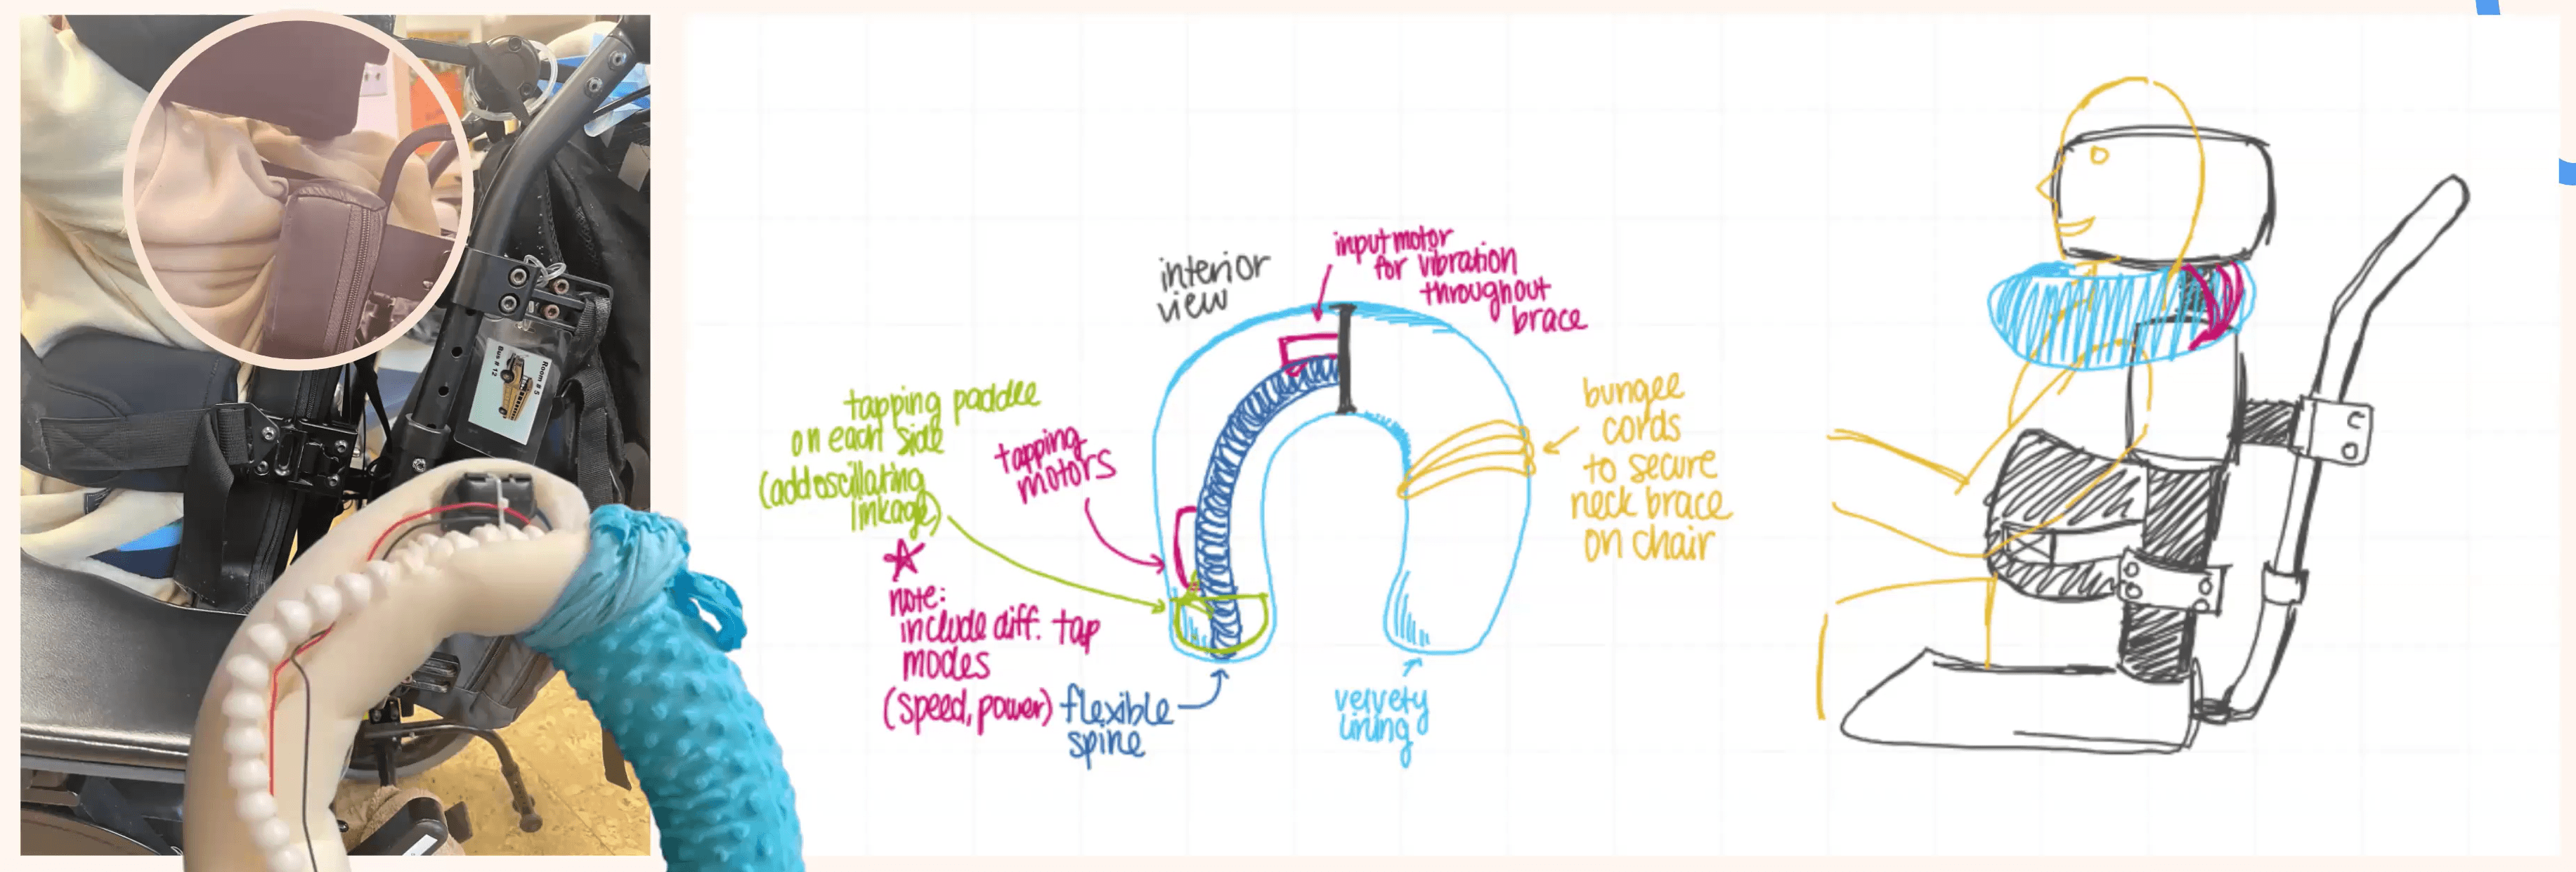 Room # 5
Bus # 12
interior
view
input motor
for vibration
throughout
brace
tapping paddle
on each side
(add oscillating
linkage)
tapping
motors
note:
include diff. tap
modes
(speed, power)
flexible
spine
velvety
lining
bungee
cords
to secure
neck brace
on chair